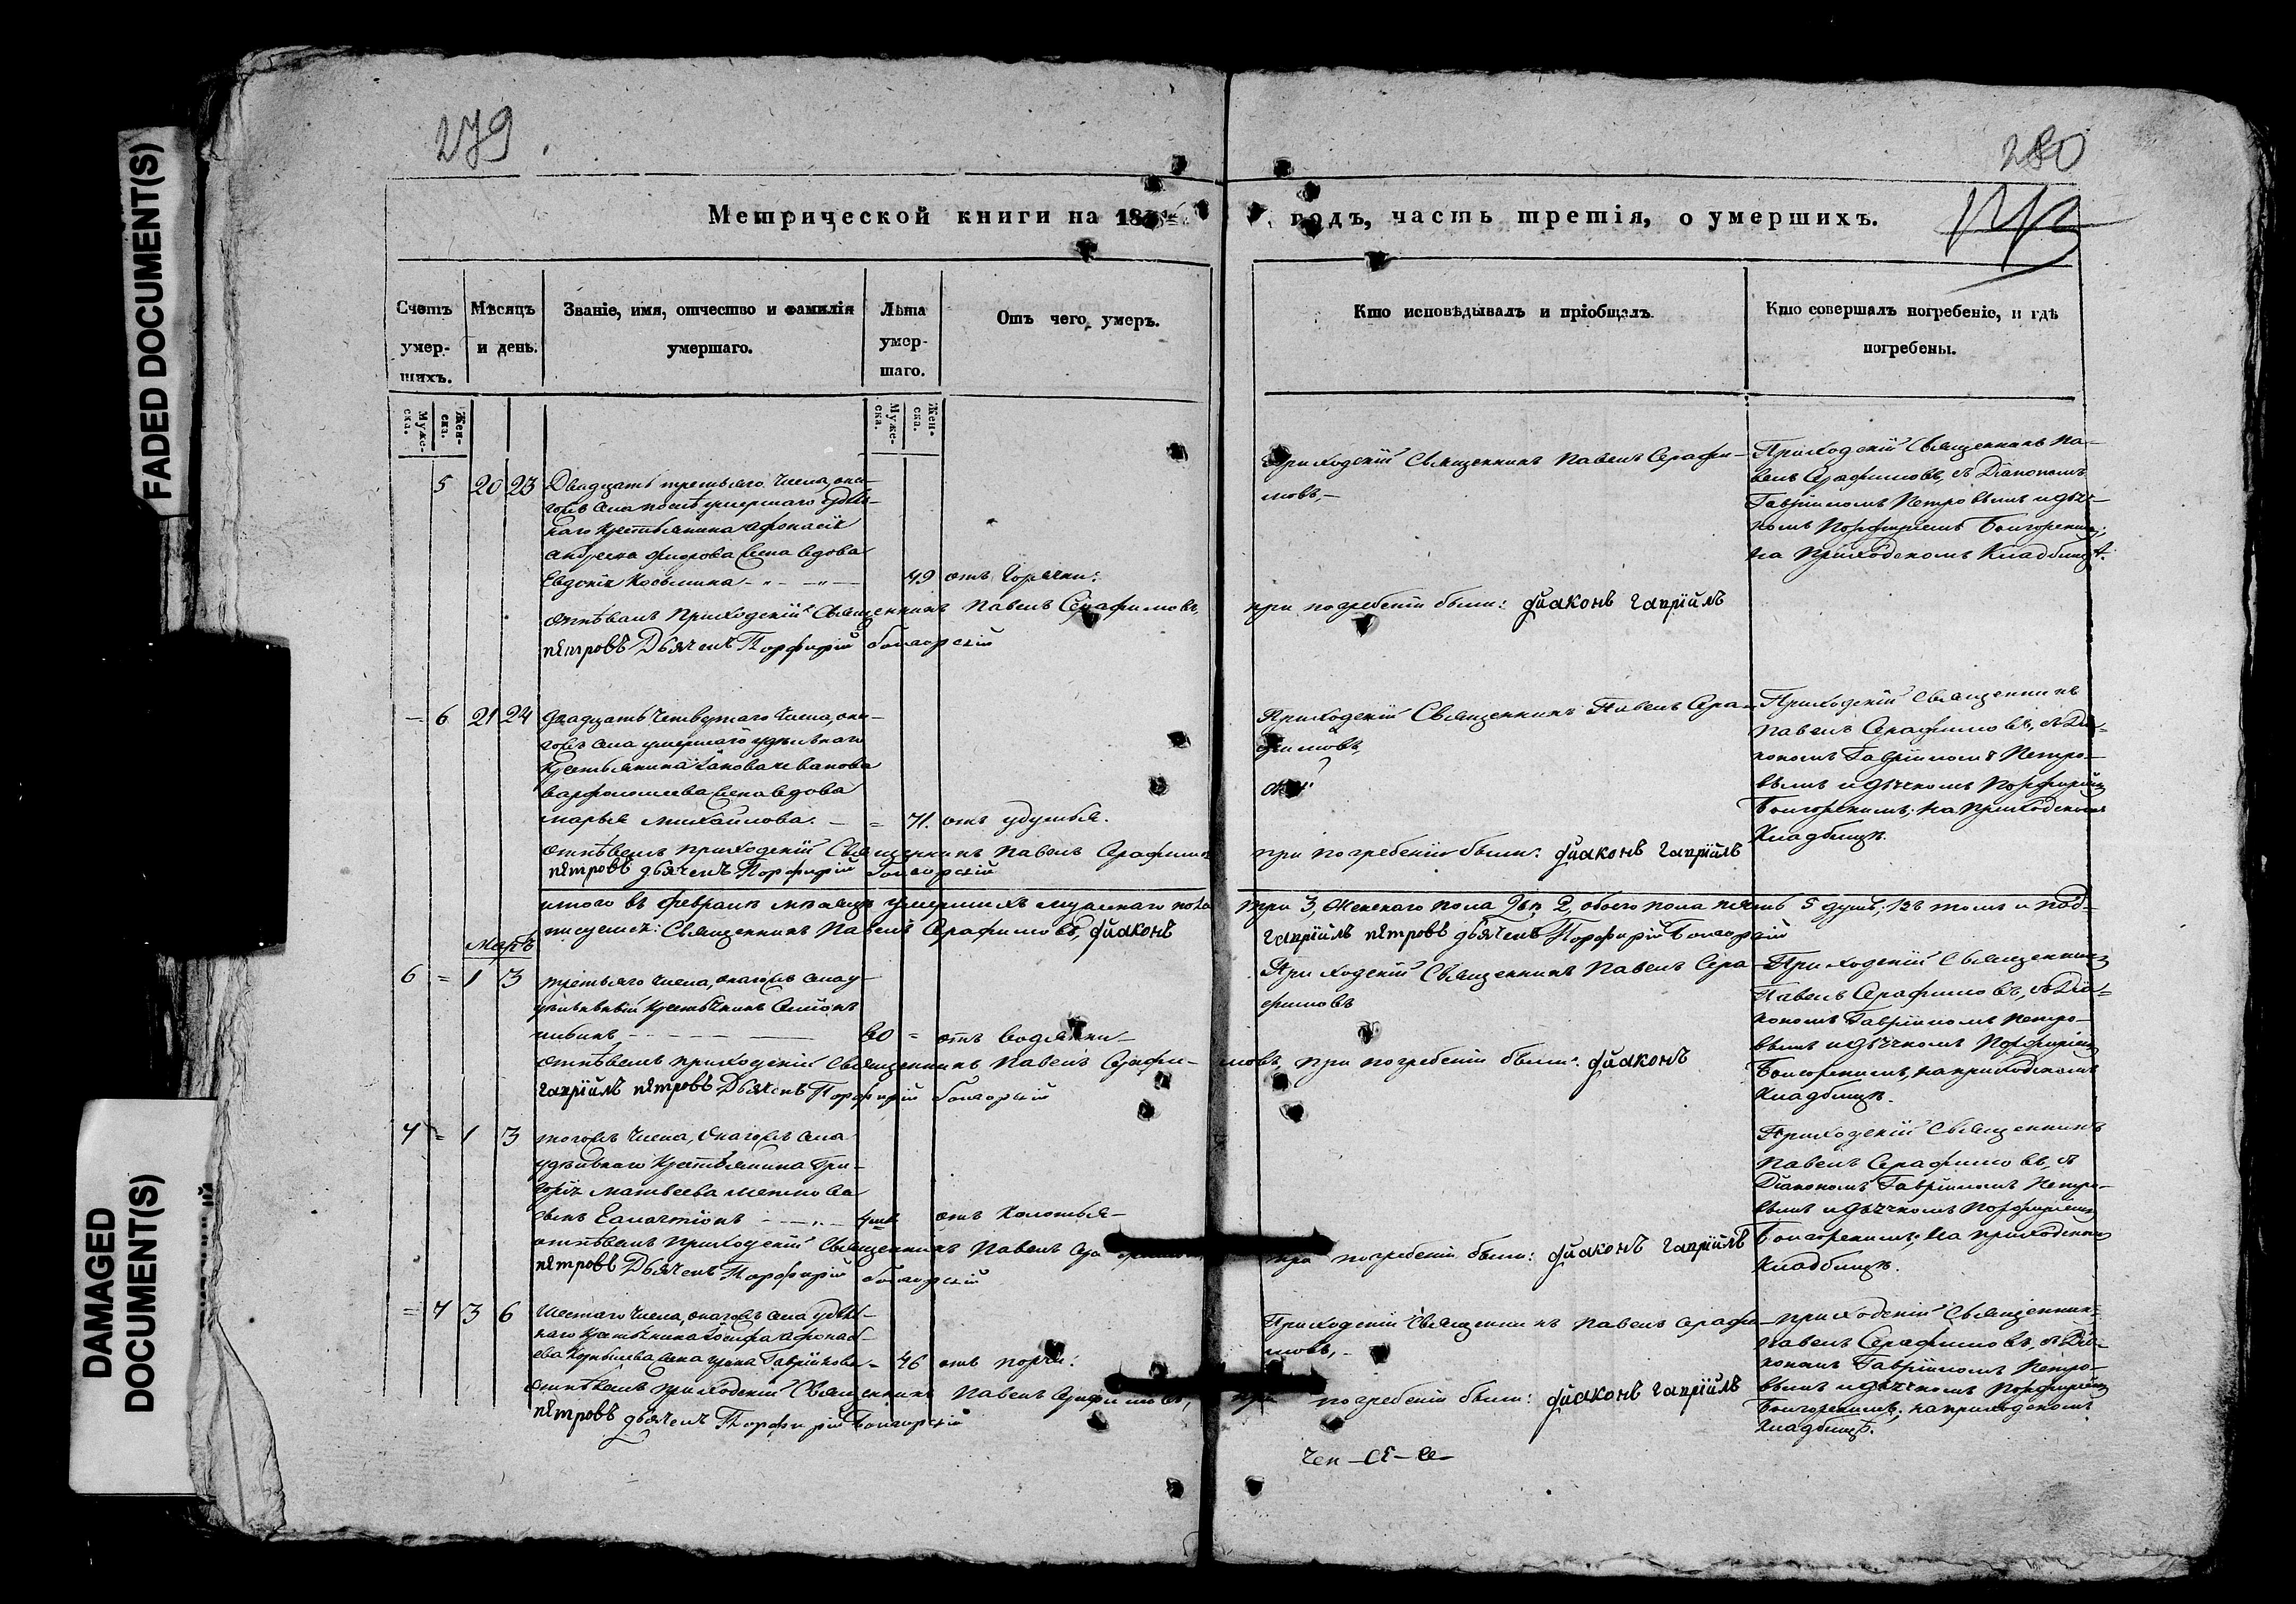 279
280
Метрической книги на 18
годъ, часть третія, о умершихъ.
Счетъ умер-шихъ.
Мѣсяцъ и день.
Званіе, имя, отчество и фамилія умершаго.
Лѣта умер-шаго.
Отъ чего умеръ.
Кто исповѣдывалъ и пріобщалъ.
Кто совершалъ погребеніе, и гдѣ погребены.
Муже-ска.
Жен-ска.
Муже-ска.
Жен-ска.
5 20 23 Двадцать третьяго числа, она-
гожъ села послѣ умершаго удѣль-
наго крестьянина Афонасія
Андреева Фнорова жена вдова
Евдокія Козьмина 49 отъ горячки.
Приходскій Священникъ Павелъ Серафи-
мовъ,
Приходскій Священникъ Па-
велъ Серафимовъ, съ Діакономъ
Гавріиломъ Петровымъ и дьяч-
комъ Порфиріемъ
на приходскомъ кладбищѣ.
отпѣвалъ приходскій Священникъ Павелъ Серафимовъ,
при погребеніи были: діаконъ гавріилъ
петровъ Дьячекъ Порфирій
6 21 24 Двадцать четвертаго числа, она-
гожъ села умершаго удѣльнаго
крестьянина Іакова Иванова
варфоломеева жена вдова
марья михайлова. 71. отъ удушья.
Приходскій Священникъ Павелъ Сера-
фимовъ
Приходскій Священникъ
Павелъ Серафимовъ, съ Діа-
кономъ Гавріиломъ Петро-
вымъ и дьячкомъ Порфиріемъ
на приходскомъ
кладбищѣ.
отпѣвалъ приходскій Священникъ Павелъ Серафимо
при погребеніи были: діаконъ гавріилъ
петровъ дьячекъ Порфирій
итого въ февралѣ мѣсяцѣ умершихъ мужескаго пола
три 3, женскаго пола двѣ 2, обоего пола пять 5 душъ; въ томъ и под-
писуемся: Священникъ Павелъ Серафимовъ, діаконъ
гавріилъ петровъ дьячекъ Порфирій
Мартъ
6 = 1 3 третьяго числа, онагожъ села
удѣльный крестьянинъ Семіонъ
60 = отъ водянки
Приходскій Священникъ Павелъ Сера-
фимовъ
Приходскій Священникъ
Павелъ Серафимовъ, съ Діа=
кономъ Гавріиломъ Петро-
вымъ и дьячкомъ Порфиріемъ
на приходскомъ
кладбищѣ.
отпѣвалъ приходскій Священникъ Павелъ Серафи-
мовъ, при погребеніи были: діаконъ
гавріилъ петровъ Дьячекъ Порфирій
7 = 1 3 тогожъ числа, онагожъ села
удѣльнаго крестьянина Гри-
горія матвеева
сынъ отъ колотья
Приходскій Священникъ
Павелъ Серафимовъ, съ
Діакономъ Гавріиломъ Петро-
вымъ и дьячкомъ Порфиріемъ
на приходскомъ
кладбищѣ.
отпѣвалъ приходскій Священникъ Павелъ
при погребеніи были: діаконъ гавріилъ
петровъ Дьячекъ Порфирій
= 7 3 6 Шестаго числа, онагожъ села удѣль-
наго крестьянина Іосифа Афонась-
ева жена 46 отъ порчи.
Приходскій Священникъ Павелъ Серафи-
мовъ,
приходскій Священникъ
Павелъ Серафимовъ, съ Діа-
кономъ Гавріиломъ Петро-
вымъ и дьячкомъ Порфиріемъ
на приходскомъ
кладбищѣ.
отпѣвалъ приходскій Священникъ Павелъ Серафимовъ,
при погребеніи были: діаконъ гавріилъ
петровъ дьячекъ Порфирій
FADED DOCUMENT(S)
DAMAGED
DOCUMENT(S)